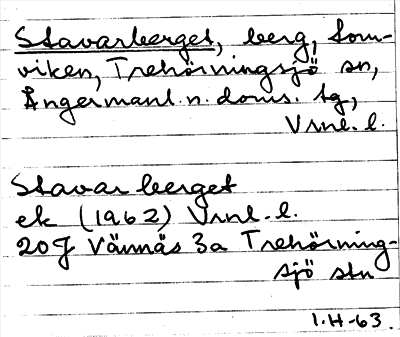 Stavarberget, berg, Tom-
viken, Trehörningsjö sn,
Ångermanl. n. doms. tg,
Vrnl. l.
Stavarberget
ek (1962) Vrnl. l.
20J Vännäs 3a Trehörning-
sjö stn
I.H-63.